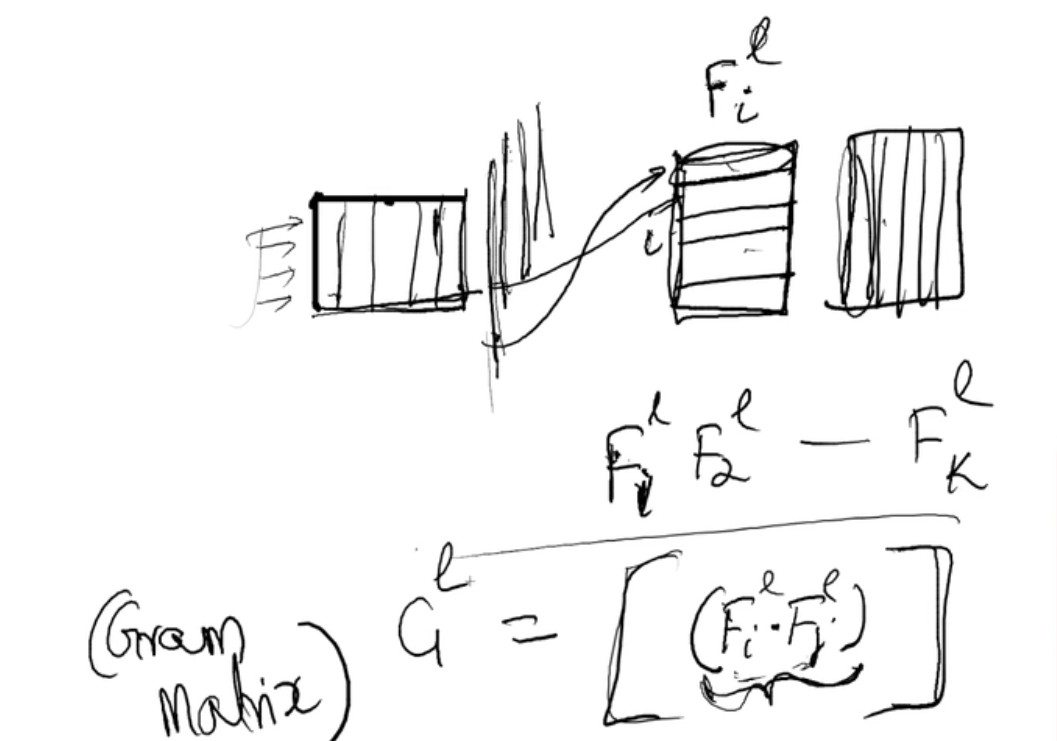 F_i^l
i
F_1^l F_2^l — F_K^l
(Gram Matrix) G^l = [ (F_i^l · F_j^l) ]